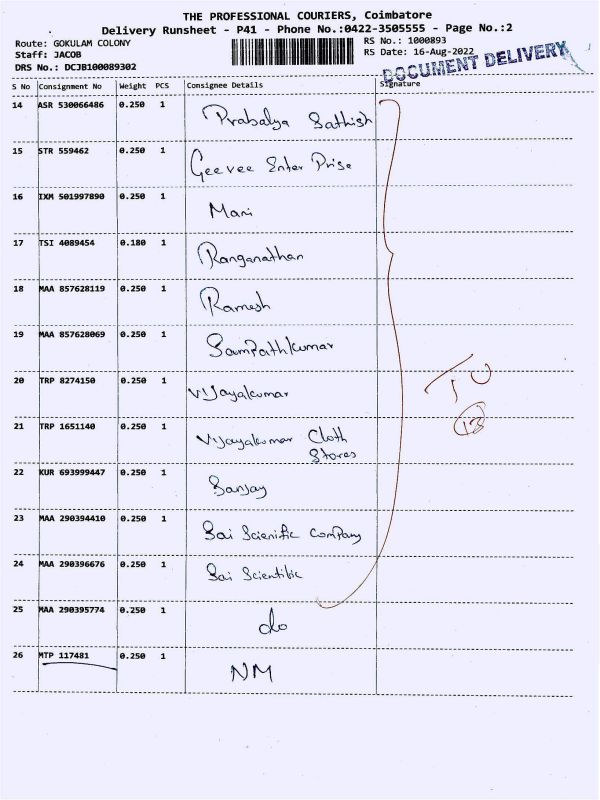 THE PROFESSIONAL COURIERS, Coimbatore
Delivery Runsheet - P41 - Phone No.:0422-3505555 - Page No.:2
Route: GOKULAM COLONY RS No.: 1000893
Staff: JACOB RS Date: 16-Aug-2022
DRS No.: DCJB100089302
DOCUMENT DELIVERY
S No Consignment No Weight PCS Consignee Details Signature
14 ASR 530066486 0.250 1 Prabalya Sathish
15 STR 559462 0.250 1 Geevee Enter Prise
16 IXM 501997890 0.250 1 Mani
17 TSI 4089454 0.180 1 Ranganathan
18 MAA 857628119 0.250 1 Ramesh
19 MAA 857628069 0.250 1 Sampathkumar
20 TRP 8274150 0.250 1 Vijayakumar
21 TRP 1651140 0.250 1 Vijayakumar Cloth
Stores
22 KUR 693999447 0.250 1 Sanjay
23 MAA 290394410 0.250 1 Sai Scienific Company
24 MAA 290396676 0.250 1 Sai Scientific
25 MAA 290395774 0.250 1 do
26 MTP 117481 0.250 1 NM
13